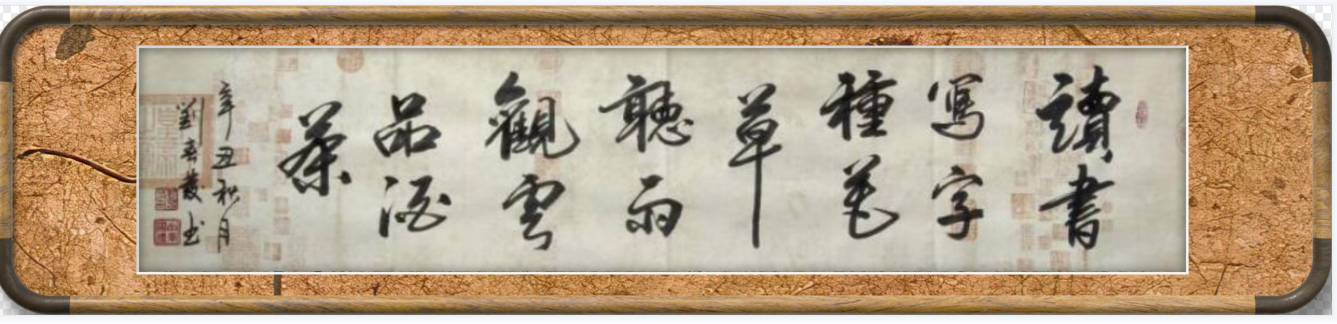 讀書
寫字
種花
草
聽雨
觀雲
品酒
茶
辛丑秋月
劉春發书